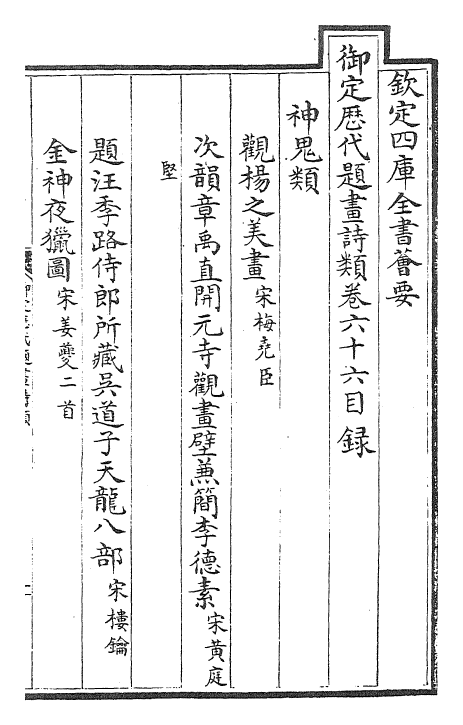 欽定四庫全書薈要
御定歴代題畫詩類卷六十六目録
神鬼類
觀楊之美畫宋梅堯臣
次韻章禹直開元寺觀畫壁兼簡李德素宋黃庭
堅
題汪季路侍郎所藏吳道子天龍八部宋樓鑰
金神夜獵圖宋姜夔二首